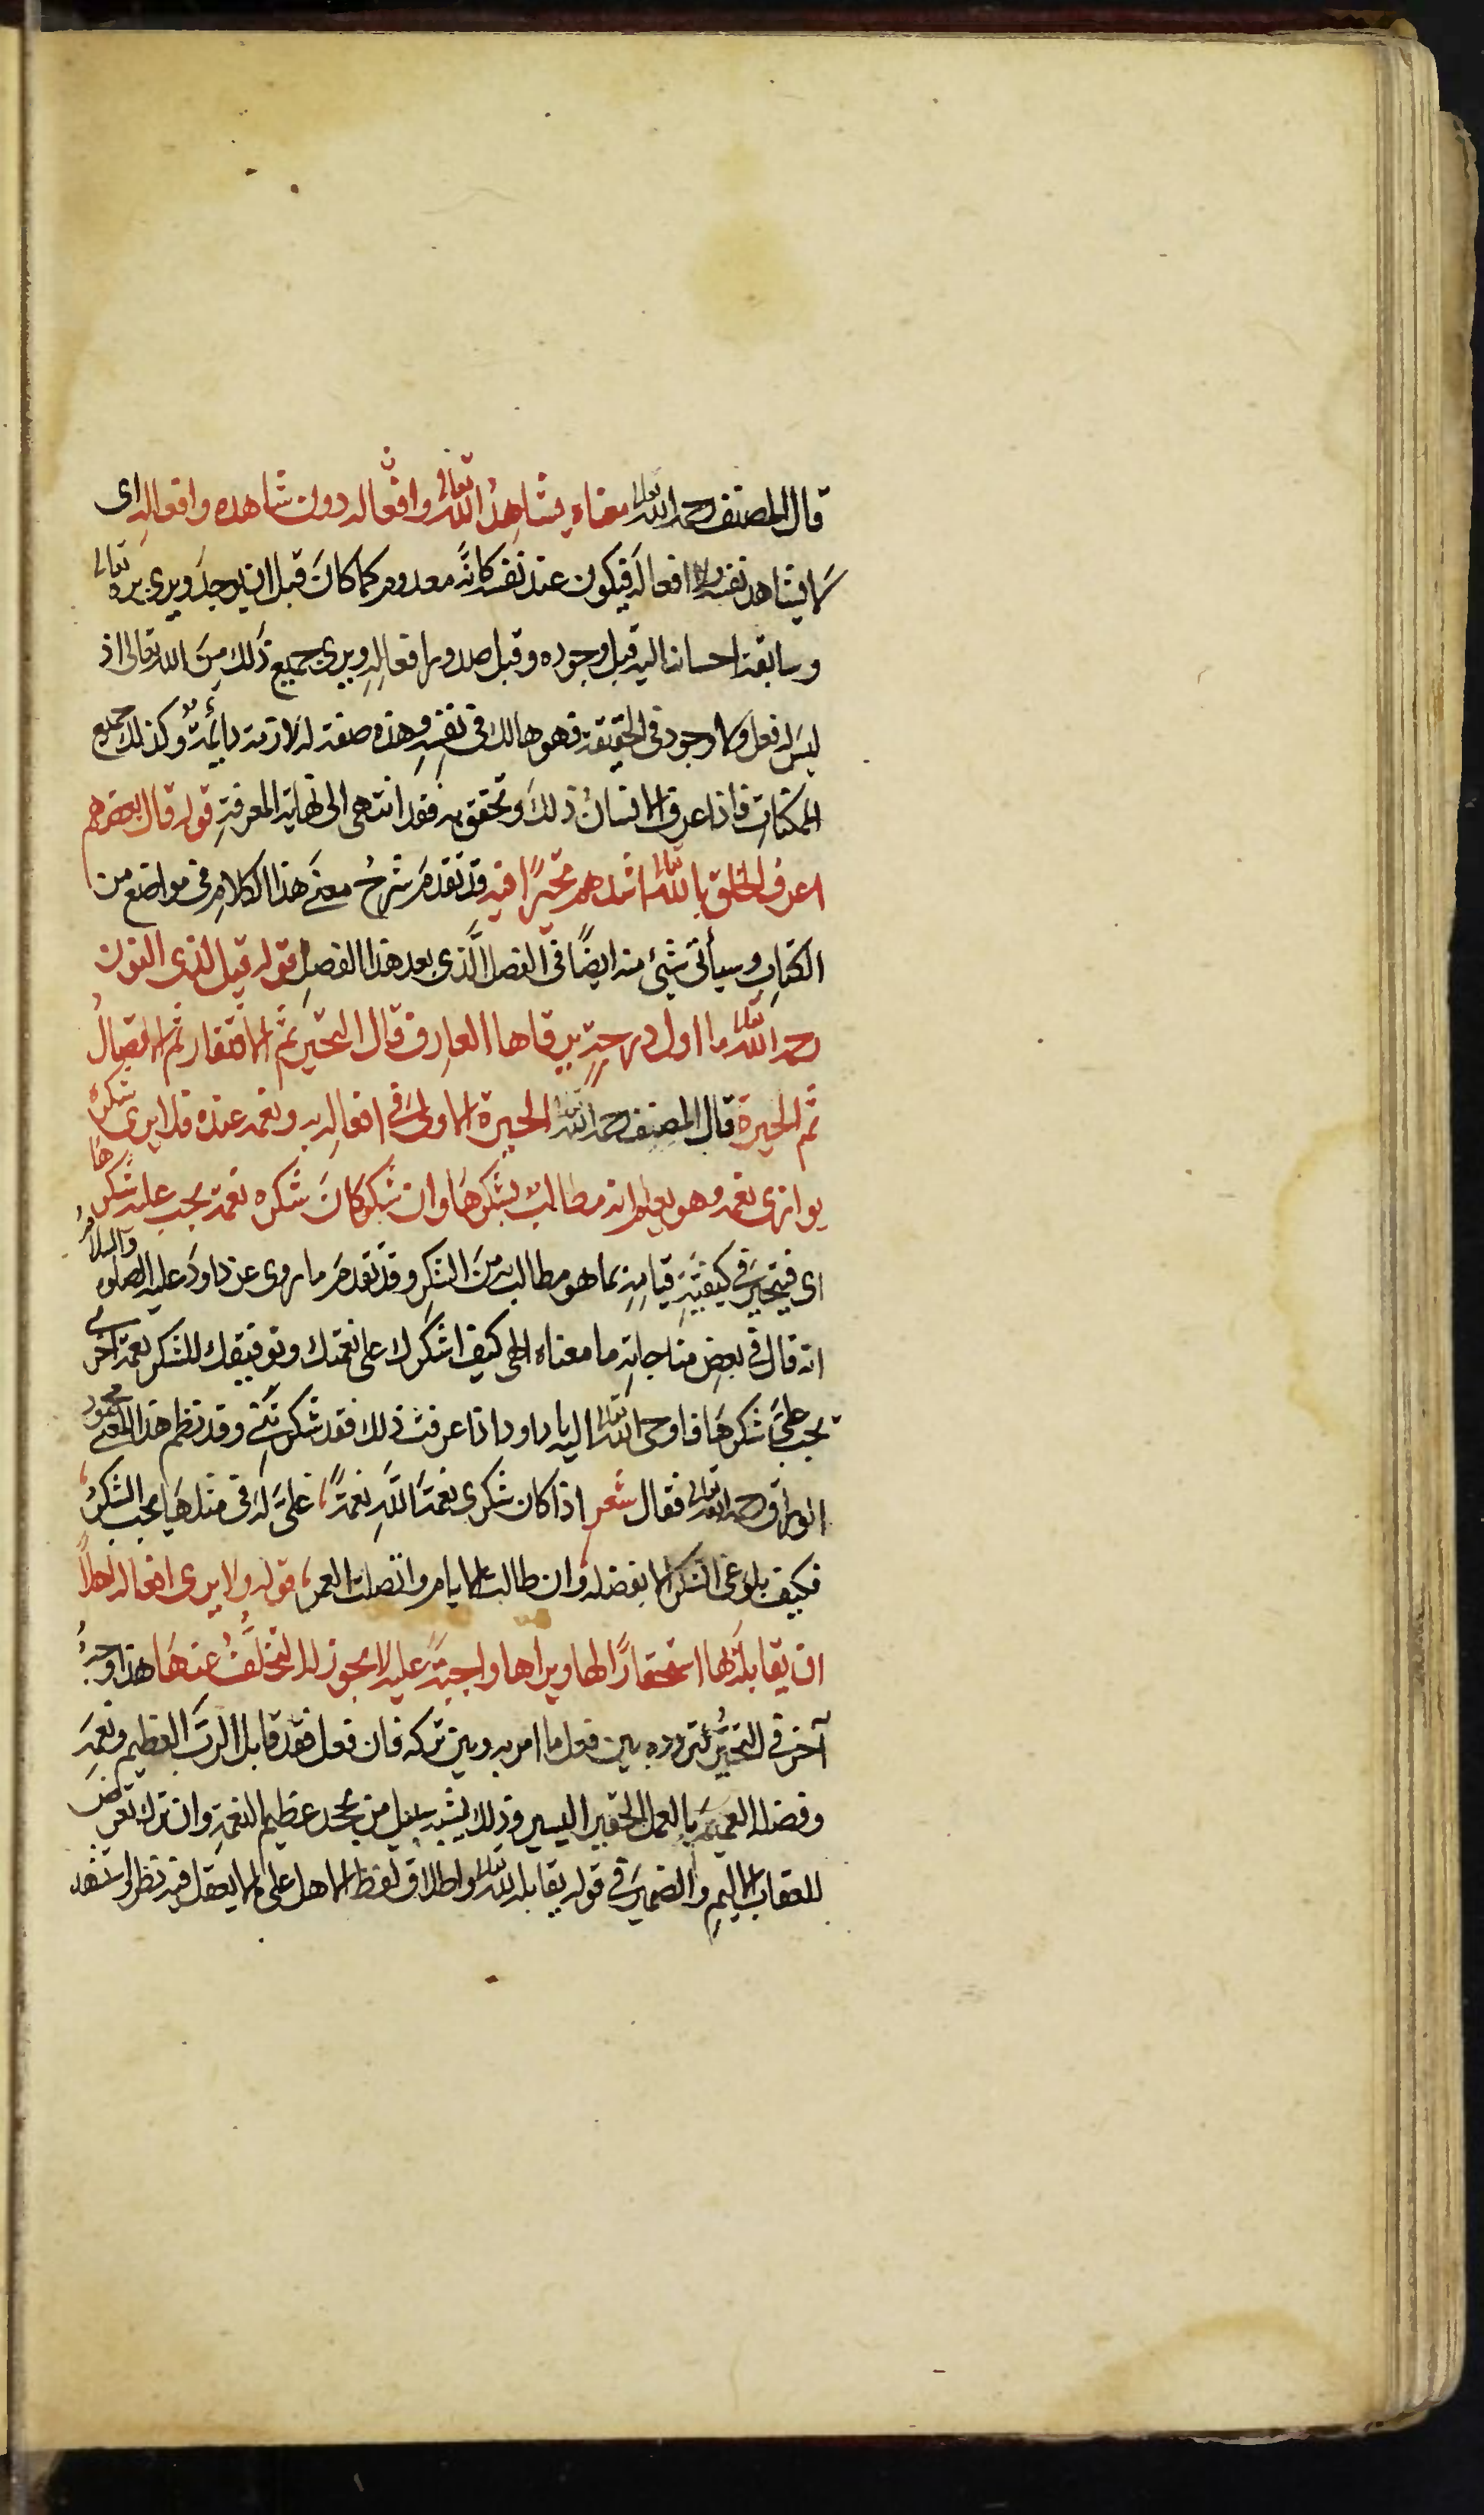 قال المصنف رحمه الله تعالى معناه يشاهد الله تعالى وافعاله دون شاهده وافعاله اى
لا يشاهد نفسه ولا افعاله فيكون عند نفسه كانّه معدوم كما كان قبل ان يوجد ويرى بره تعالى
وسابقة احسانه اليه قبل وجوده وقبل صدور افعاله ويرى جميع ذلك من الله تعالى اذ
ليس له فعل ولا وجود فى الحقيقة فهو هالك فى نفسه وهذه صفة له لازمة دائمة وكذلك جميع
الممكنات فاذا عرف الانسان ذلك وتحقق به فقد انتهى الى نهاية المعرفة قوله قال بعضهم
اعرف الخلق بالله تعالى اشدهم تحيرًا فيه قد تقدم شرح معنى هذا الكلام فى مواضع من
الكتاب وسيأتى شيئ منه ايضًا فى الفصل الّذى بعد هذا الفصل قوله قيل لذى النون
رحمه الله تعالى ما اول درجة يرقاها العارف قال التحير ثم الافتقار ثم الاتصال
ثم الحيرة قال المصنف رحمه الله تعالى الحيرة الاولى فى افعاله به ونعمه عنده فلا يرى شكره
يوازى نعمه وهو يعلم انه مطالب بشكرها وان شكر كان شكره نعمة يجب عليه شكرها
اى فيتحير فى كيفية قيامه بما هو مطالب به من الشكر وقد تقدم ما روى عن داود عليه الصلوة والسلام
انه قال فى بعض مناجاته ما معناه الهى كيف اشكرك على نعمتك وتوفيقك للشكر نعمة اخرى
يجب علىّ شكرها فاوحى الله تعالى اليه يا داود اذا عرفت ذلك فقد شكرتنى وقد نظم هذا المعنى محمود
الوراق رحمه الله تعالى فقال شعر اذا كان شكرى نعمة الله نعمةً، علىّ له فى مثلها يجب الشكر،
فكيف بلوغى الشكر الا بفضله، وان طالت الايام واتصلت العمر، قوله ولا يرى افعاله اهلاً
ان يقابله بها استحقارًا لها ويراها واجبةً عليه لا يجوز له التخلّف عنها هذا وجه
آخر فى التحيّر لتردده بين فعل ما امر به وبين تركه فان فعل فقد قابل الرب العظيم ونعمه
وفضله العميم بالعمل الحقير اليسير وذلك يشبه من يجحد عظيم النعمة وان ترك تعرض
للعقاب الاليم والضمير فى قوله يقابله لله تعالى واطلاق لفظ الاهل على ما لا يعقل فيه نظر